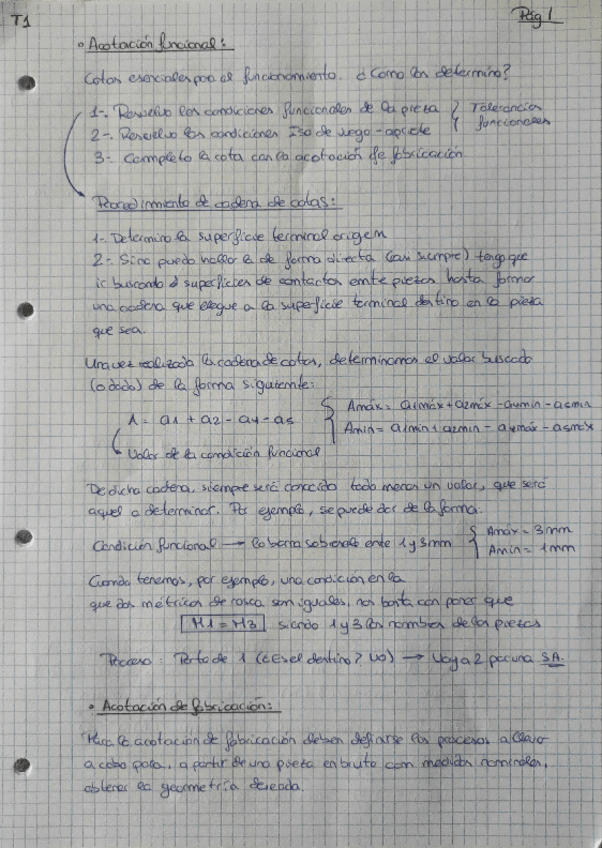 T1
Pág 1
• Acotación funcional:
Cotas esenciales para el funcionamiento. ¿Cómo las determino?
1-. Resuelvo las condiciones funcionales de la pieza } Tolerancias
2-. Resuelvo las condiciones Iso de juego-apriete } funcionales
3-. Completo la cota con la acotación de fabricación
Procedimiento de cadena de cotas:
1-. Determino la superficie terminal origen
2-. Sino puedo hallarla de forma directa (casi siempre) tengo que
ir buscando superficies de contactos entre piezas hasta formar
una cadena que llegue a la superficie terminal destino en la pieza
que sea.
Una vez realizada la cadena de cotas, determinamos el valor buscado
(o dado) de la forma siguiente:
A = a1 + a2 - a4 - a5 { Amáx = a1máx + a2máx - a4mín - a5mín
Amín = a1mín + a2mín - a4máx - a5máx
Valor de la condición funcional
De dicha cadena, siempre será conocido todo menos un valor, que será
aquel a determinar. Por ejemplo, se puede dar de la forma:
Condición funcional → la barra sobresale entre 1 y 3mm { Amáx = 3mm
Amín = 1mm
Cuando tenemos, por ejemplo, una condición en la
que dos métricas de rosca son iguales, nos basta con poner que
M1 = M3 siendo 1 y 3 los nombres de las piezas
Proceso: Parto de 1 (¿Es el destino? No) → Voy a 2 por una SA.
• Acotación de fabricación:
Para la acotación de fabricación deben definirse los procesos a llevar
a cabo para, a partir de una pieza en bruto con medidas nominales,
obtener la geometría deseada.